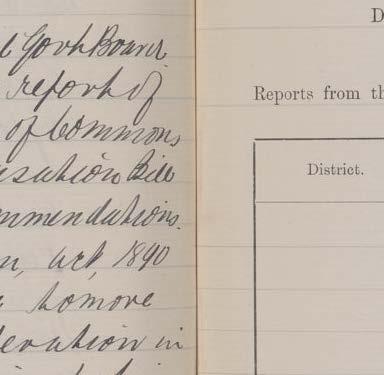 l Govt Board
report of
of Commons
isation Bill
mmendations.
n, act, 1890
to move
eration in
D
Reports from th
District.